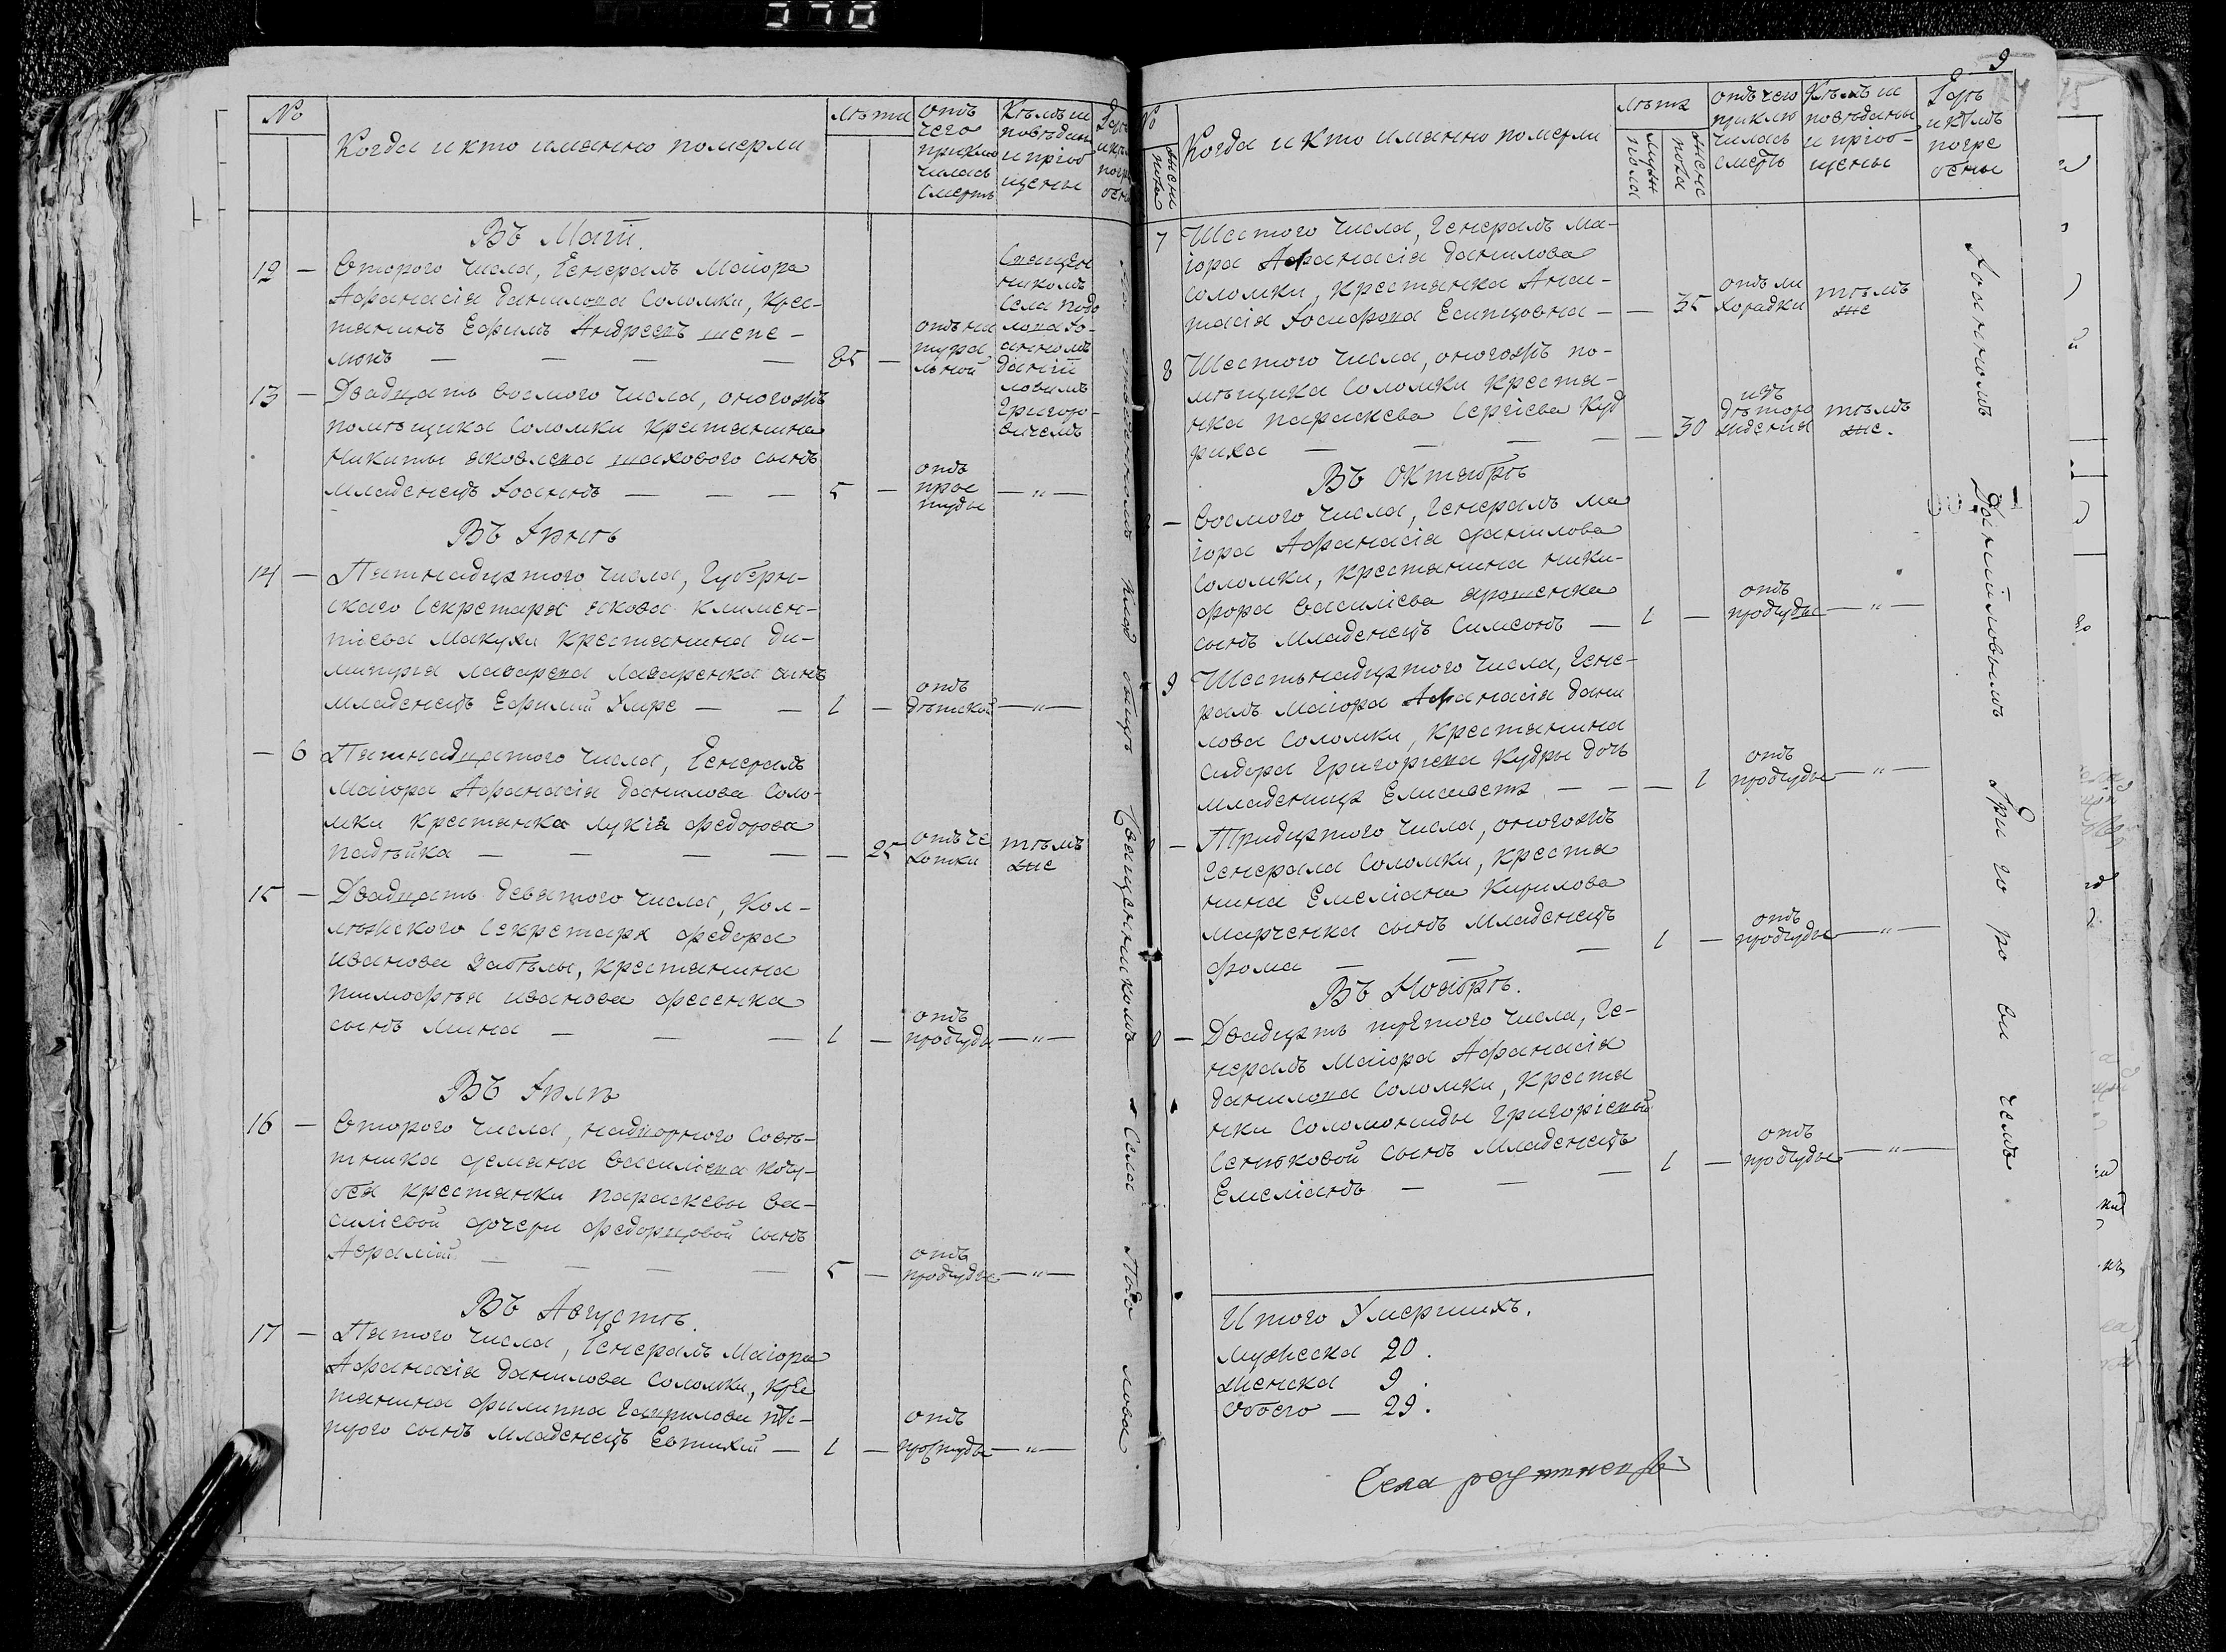 №
Когда и кто имянно померли
лѣта
отъ
чего
приклю
чилась
смерть
Кѣмъ и
повѣданы
и пріоб
щены
Въ Маіи.
12 — Второго числа, Генералъ Маіора
Афанасія Данилова Соломки, крес-
тянинъ Ефимъ Андреевъ шепе-
люкъ — — — — 85 —
отъ на
тура
льной
Священ
никомъ
села подо
лова Іо-
анномъ
Даніи
ловимъ
Григоро-
вичемъ
13 — Двадцать восмого числа, оногожъ
помѣщика Соломки крестянина
Никиты яковлева шахового сынъ
младенецъ Іоаннъ — — — 5 —
отъ
прос
туды
— „ —
Въ Іюнѣ
14 — Пятнадцятого числа, Губерн-
скаго Секретаря якова климен-
тіева Макухи крестянина Ди-
митрія лазарева лазаренка синъ
младенецъ Ефимій Умре — — 1 —
отъ
дѣтской
— „ —
— 6 Пятнадцатого числа, Генералъ
Маіора Афанасія Данилова Соло-
мки крестянка лукія федорова
падѣйка — — — — — 25
отъ че
хотки
тѣмъ
же
15 — Двадцать девятого числа, Кол-
лѣжского Секретаря федора
иванова Забѣлы, крестянина
тимофѣя иванова фесенка
сынъ Мина — — — 1 —
отъ
простуды
— „ —
Въ Іюлѣ
16 — Второго числа, надворного совѣ-
тника демяна василіева кочу-
бея крестянки параскевы ва-
силіевой дочери федорцовой сынъ
Аврамій — — — — 5 —
отъ
простуды
— „ —
Въ Августѣ.
17 — Пятого числа, Генералъ Маіора
Афанасія Данилова Соломки, крес
тянина филиппа Гаврилова
сынъ младенецъ Евтихій — 1 —
отъ
простуды
— „ —
Священникомъ Села Подо лова
9
№
женска
пола
Когда и кто имянно померли
лѣта
мужска
пола
женска
пола
отъ чего
приклю
чилась
смерть
Кѣмъ и
повѣданы
и пріоб-
щены
Гдѣ
и кѣмъ
погре
бены
7 Шестого числа, Генералъ Ма-
іора Афанасія Данилова
Соломки, крестянка Анас-
тасія Іосифова Есипцовна — — 35
отъ ли
хорадки
тѣмъ
же
8 Шестого числа, оногожъ по-
мѣщика Соломки крестя-
нка параскева Сергіева Куд
риха — — — — 30
изъ
дѣторо
жденія
тѣмъ
же.
Въ Октябрѣ
— Восмого числа, Генералъ ма
іора Афанасія данилова
Соломки, крестянина ники-
фора василіева ярошенка
сынъ младенецъ Симеонъ — 1 —
отъ
простуды
— „ —
9 Шестьнадцятого числа, Гене-
ралъ Маіора Афанасія Дани
лова Соломки, крестянина
Сидора Григоріева Кудри дочь
младеница Елисавета — — — 1
отъ
простуды
— „ —
— Тридцятого числа, оногожъ
Генерала Соломки, крестя
нина Емеліана Кирилова
марченка сынъ младенецъ
фома — — — 1 —
отъ
простуды
— „ —
Въ Ноябрѣ.
— Двадцять третого числа, Ге-
нералъ Маіора Афанасія
Данилова Соломки, крестя
нки Соломониды Григоріевой
Сенковой сынъ младенецъ
Емеліанъ — — — 1 —
отъ
простуды
— „ —
Іоанномъ Данииловымъ Гри го ро ви чемъ
Итого Умершихъ.
Мужеска 20.
Женска 9.
Обоего — 29.
Села